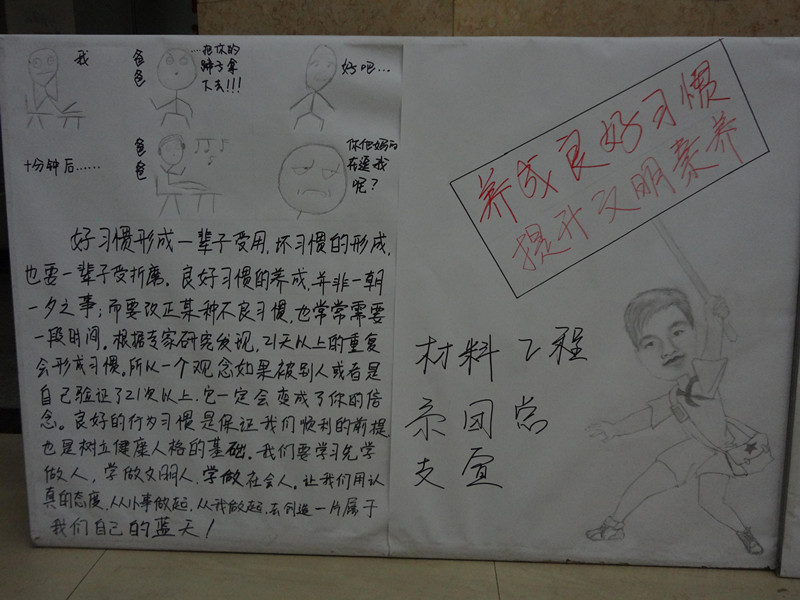 我
爸爸
....把你的
蹄子拿
下去!!!
好吧...
十分钟后......
爸爸
你他妈的
在逗我
呢?
好习惯形成一辈子受用,坏习惯的形成,
也要一辈子受折磨。良好习惯的养成,并非一朝
一夕之事;而要改正某种不良习惯,也常常需要
一段时间。根据专家研究发现,21天以上的重复
会形成习惯。所以一个观念如果被别人或者是
自己验证了21次以上,它一定会变成了你的信
念。良好的行为习惯是保证我们顺利的前提,
也是树立健康人格的基础。我们要学习先学
做人,学做文明人,学做社会人,让我们用认
真的态度,从小事做起,从我做起,去创造一片属于
我们自己的蓝天!
养成良好习惯
提升文明素养
材料工程
系团总
支宣